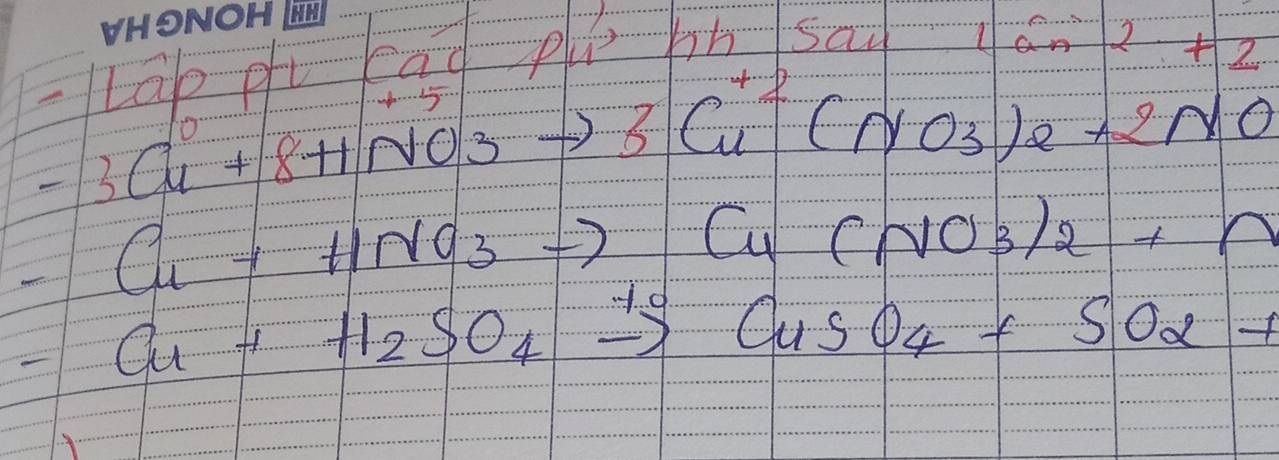 HONGHA HH
- Lập pt các pứ hh sau 1 ẩn 2 +2
0 +5 +2
- 3Cu + 8HNO3 → 3 Cu (NO3)2 + 2NO
- Cu + HNO3 → Cu (NO3)2 + N
- Cu + H2SO4 t° → CuSO4 + SO2 +